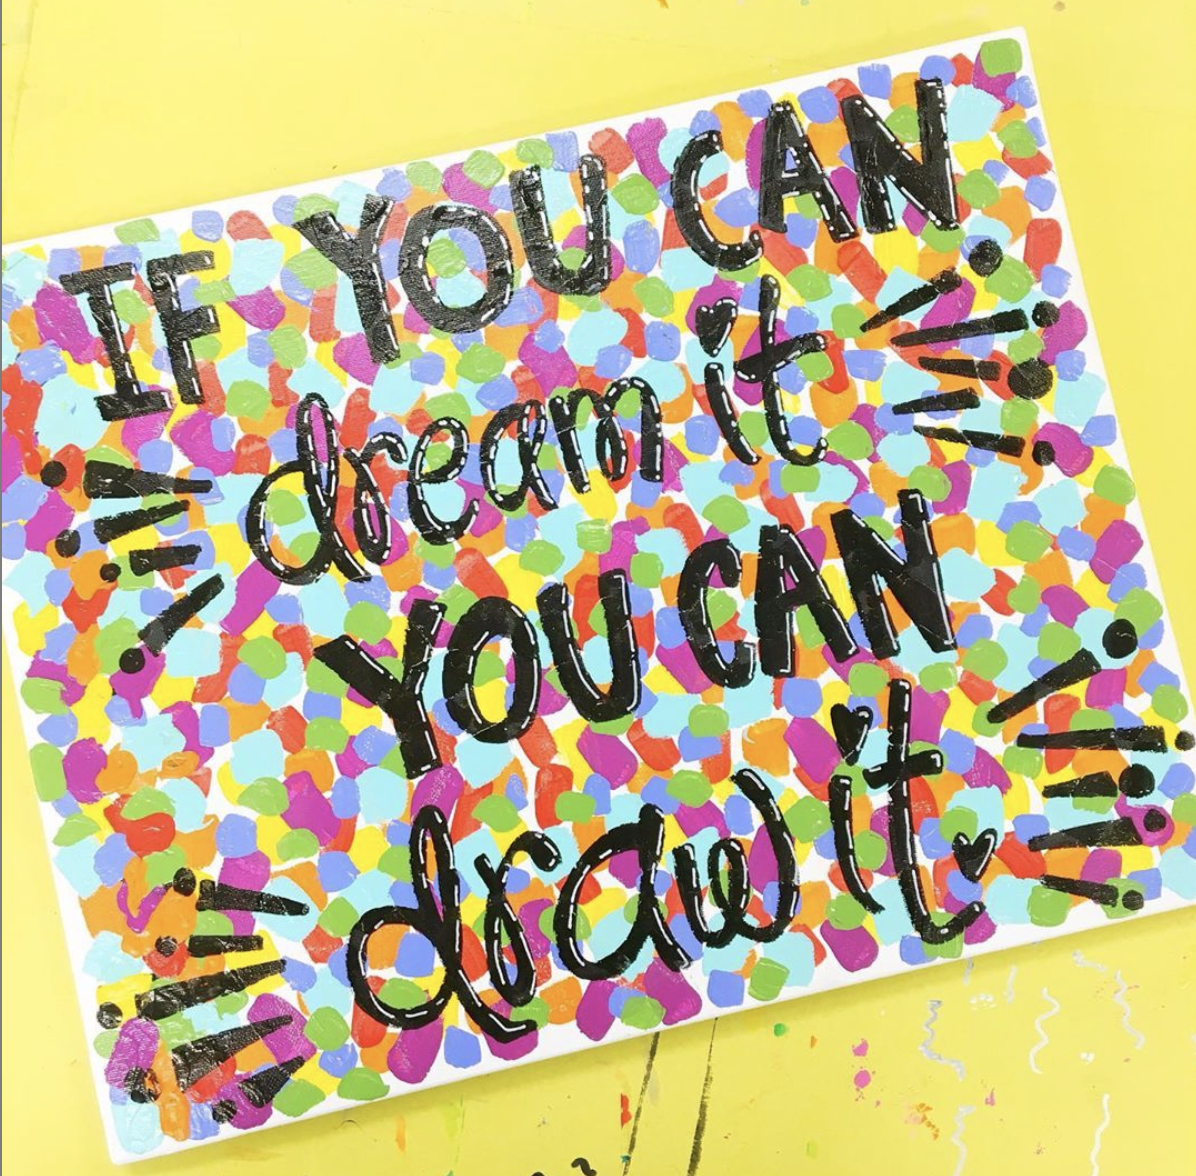 IF YOU CAN
dream it
YOU CAN
draw it